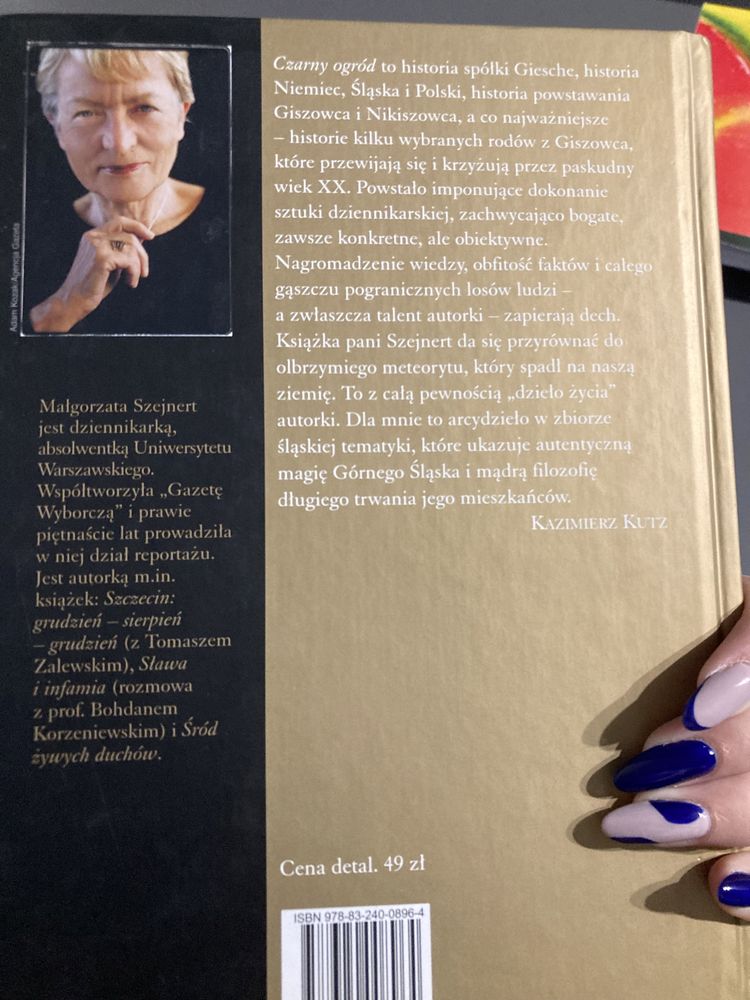 Adam Kozak/Agencja Gazeta
Małgorzata Szejnert
jest dziennikarką,
absolwentką Uniwersytetu
Warszawskiego.
Współtworzyła „Gazetę
Wyborczą” i prawie
piętnaście lat prowadziła
w niej dział reportażu.
Jest autorką m.in.
książek: Szczecin:
grudzień – sierpień
– grudzień (z Tomaszem
Zalewskim), Sława
i infamia (rozmowa
z prof. Bohdanem
Korzeniewskim) i Śród
żywych duchów.
Czarny ogród to historia spółki Giesche, historia
Niemiec, Śląska i Polski, historia powstawania
Giszowca i Nikiszowca, a co najważniejsze
– historie kilku wybranych rodów z Giszowca,
które przewijają się i krzyżują przez paskudny
wiek XX. Powstało imponujące dokonanie
sztuki dziennikarskiej, zachwycająco bogate,
zawsze konkretne, ale obiektywne.
Nagromadzenie wiedzy, obfitość faktów i całego
gąszczu pogranicznych losów ludzi –
a zwłaszcza talent autorki – zapierają dech.
Książka pani Szejnert da się przyrównać do
olbrzymiego meteorytu, który spadł na naszą
ziemię. To z całą pewnością „dzieło życia”
autorki. Dla mnie to arcydzieło w zbiorze
śląskiej tematyki, które ukazuje autentyczną
magię Górnego Śląska i mądrą filozofię
długiego trwania jego mieszkańców.
KAZIMIERZ KUTZ
Cena detal. 49 zł
ISBN 978-83-240-0896-4